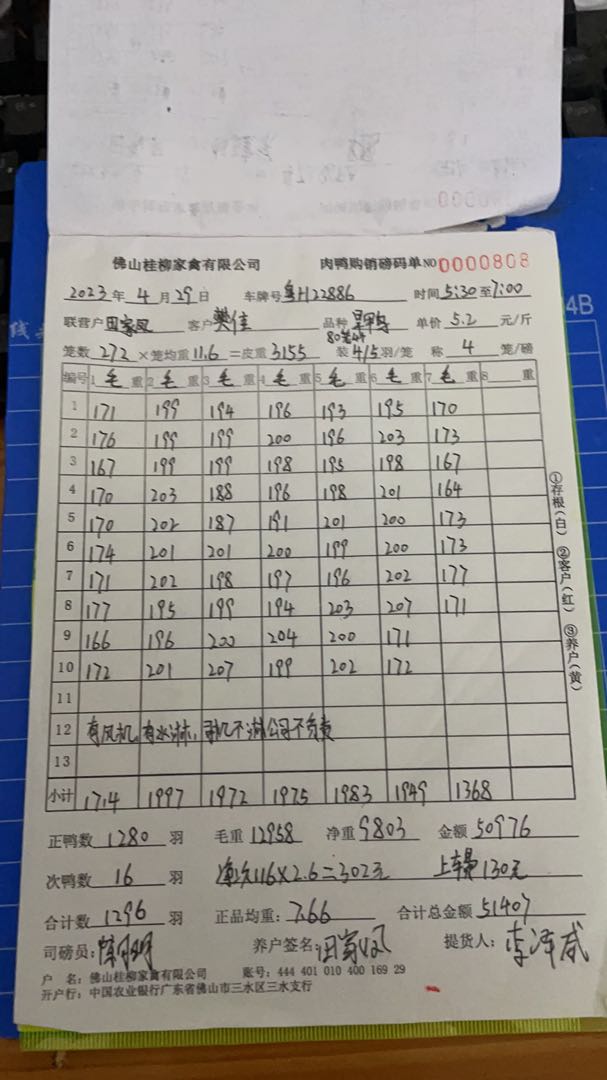 佛山桂柳家禽有限公司 肉鸭购销磅码单 NO 0000808
2023年 4月 29日 车牌号 粤H22886 时间 5:30 至 7:00
联营户 田家凤 客户 樊佳 品种 单价 5.2 元/斤
笼数 272 ×笼均重 11.6 =皮重 3155 装 4/5 羽/笼 称 4 笼/磅
编号 1 毛 重 2 毛 重 3 毛 重 4 毛 重 5 毛 重 6 毛 重 7 毛 重 8 重
1 171 199 194 196 193 195 170
2 176 199 199 200 196 203 173
3 167 199 199 198 195 198 167
4 170 203 188 196 198 201 164
5 170 202 187 191 201 200 173
6 174 201 201 200 199 200 173
7 171 202 198 197 196 202 177
8 177 195 199 194 203 207 171
9 166 196 200 204 200 171
10 172 201 207 199 202 172
11
12 有风机,有水淋,司机不淋公司不负责
13
小计 1714 1997 1972 1975 1983 1949 1368
①存根(白) ②客户(红) ③养户(黄)
正鸭数 1280 羽 毛重 12958 净重 9803 金额 50976
次鸭数 16 羽 净次116×2.6=302元 上车费130元
合计数 1296 羽 正品均重: 7.66 合计总金额 51407
司磅员: 养户签名: 田家凤 提货人: 李泽威
户 名: 佛山桂柳家禽有限公司 账号: 444 401 010 400 169 29
开户行: 中国农业银行广东省佛山市三水区三水支行
4B